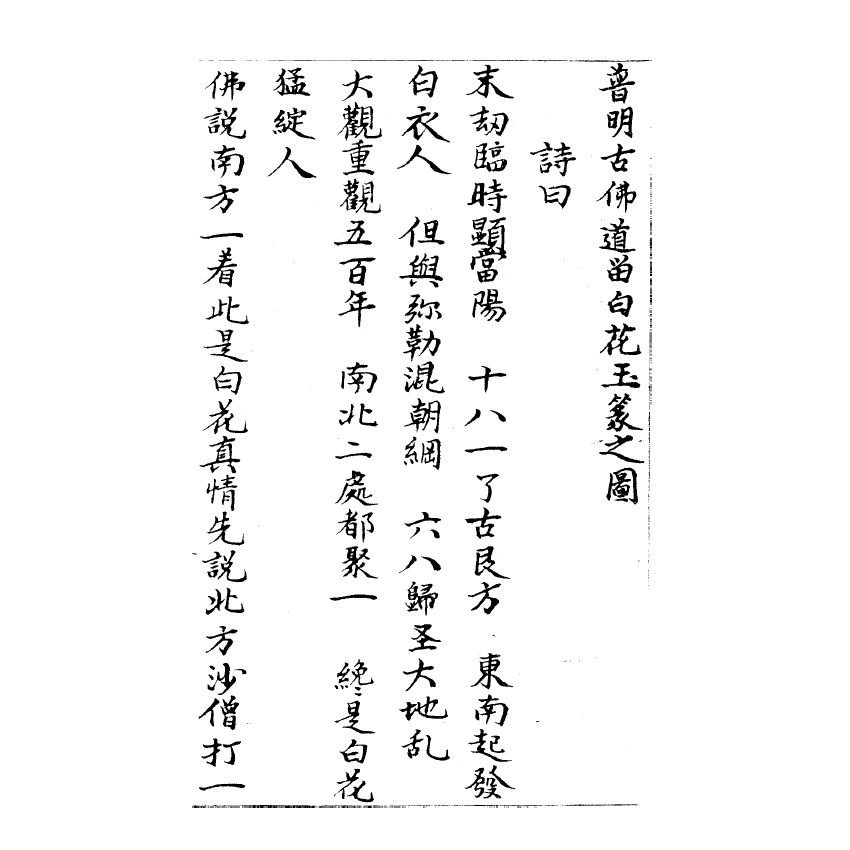 普明古佛道留白花玉篆之圖
詩曰
末刼臨時顯當陽 十八一了古艮方 東南起發
白衣人 但與弥勒混朝綱 六八歸圣大地乱
大觀重觀五百年 南北二處都聚一 纔是白花
猛綻人
佛説南方一着此是白花真情先説北方沙僧打一